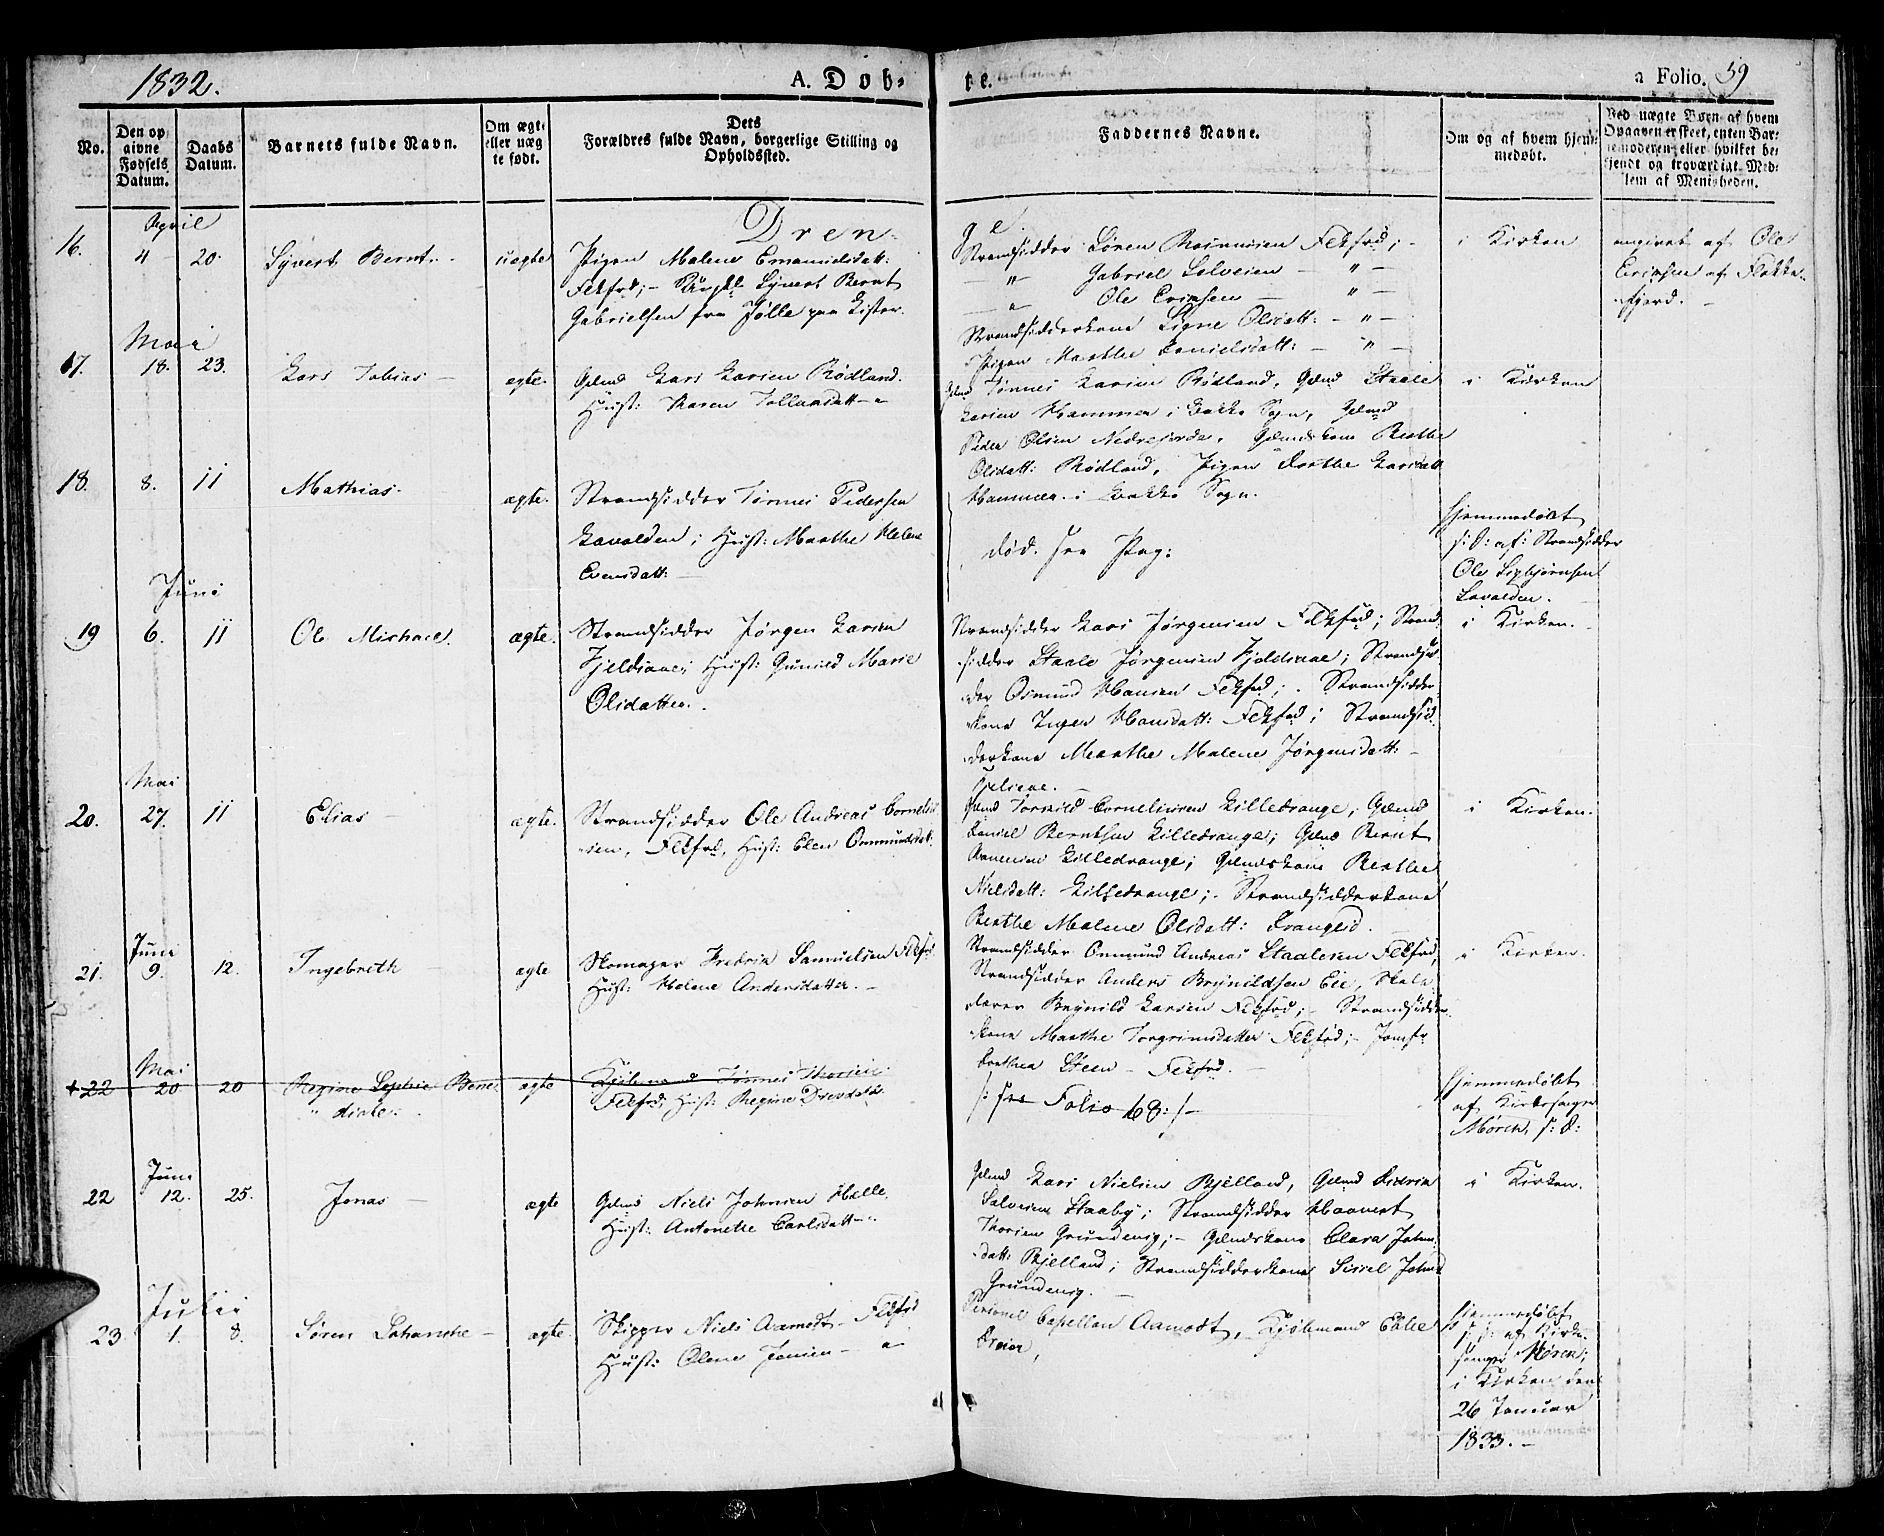 1832.
A. Dob-
te.
a Folio. 59
No.
Den op
givne
Fødsels
Datum.
Daabs
Datum.
Barnets fulde Navn.
Om ægte
eller uæg
te født.
Dets
Forældres fulde Navn, borgerlige Stilling og
Opholdssted.
Faddernes Navne.
Om og af hvem hjem
medøbt.
Ved uægte Børn af hvem
Opgaven er skeet, enten Bar-
nemoderen eller hvilket be-
kjendt og troværdigt Med-
lem af Menigheden.
Dren-
ge.
April
16. 4 20. Syvert Bernt. uægte Pigen Malene Emanuelsdatt:
Fekfrd;
Syvert Bernt
Gabrielsen fra Jølle paa Lister.
Strandsidder Søren Rasmusen Fekfrd;
— " Gabriel Salvesen — " —
— " Ole Erichsen — " —
Strandsidderkone Signe Olsdatt: — " —
Pigen Marthe Danielsdatt: — " —
i Kirken
angivet af Ole
Erichsen af Flekke-
fjord. —
Mai
17. 18. 23. Lars Tobias — ægte. Gdmd Lars Larsen Rødland.
Hust: Karen Tollaksdatt — "
Gdmd Tønnes Larsen Rødland, Gdmd Staale
Larsen Hammer i Bakke Sogn, Gdmd
Peder Olsen Nedrejorde, Gdmdskone Berthe
Olsdatt: Rødland, Pigen Dorthe Larsdatt
Hammer i Bakke Sogn.
i Kirken
18. 8. 11 Mathias. ægte. Strandsidder Tønnes Pedersen
Lavolden; Hust: Marthe Helene
Evensdatt: —
død. see Pag:
hjemmedøbt
s: D: af: Strandsidder
Ole Sigbjørnsen
Lavolden. —
Juni
19 6. 11 Ole Michael. ægte. Strandsidder Jørgen Larsen
Fjeldsaae; Hust: Gunild Marie
Olsdatter.
Strandsidder Lars Jørgensen Fekfrd; Strand-
sidder Staale Jørgensen Fjeldsaae; Strandsid-
der Osmund Hansen Fekfrd; Strandsidder-
kone Inger Hansdatt: Fekfrd; Strandsid-
derkone Marthe Malene Jørgensdatt: —
Fjeldsaae. —
i Kirken. —
Mai
20. 27. 11 Elias — ægte. Strandsidder Ole Andreas Corneliu-
sen, Fekfrd, Hust: Elen Ommundsdatt.
Gdmd Torkild Corneliussen Lilledrange; Gdmd
Daniel Berntsen Lilledrange; Gdmd Bernt
Arnesen Lilledrange; Gdmdskone Berthe
Nielsdatt: Lilledrange; Strandsidderkone
Berthe Malene Olsdatt: Drangeid.
i Kirken.
Juni
21. 9. 12. Ingebreth — ægte Skomager Fredrik Samuelsen Fekfrd
Hust: Helene Andersdatter. —
Strandsidder Ommund Andreas Staalesen Fekfrd,
Strandsidder Anders Brynildsen Eie, Skole-
lærer Brynild Larsen Fekfrd; — Strandsidder-
kone Marthe Torgrimsdatter Fekfrd; — Jomfr
Dorthea Steen — Fekfrd. —
i Kirken.
Mai
+ 22 20 20 Regine Sophie Bene-
dicte. ægte Kjøbmand Tønnes Thorsen
Fekfrd; Hust: Regine
/: see Folio 68: /—
hjemmedøbt
af Kirkesanger
Mørch, s: D:
Juni
22 12. 25. Jonas — ægte Gdmd Niels Johnsen Helle
Hust: Antonette Carlsdatt
Gdmd Lars Nielsen Bjelland, Gdmd Didrik
Salvesen Staaby; Strandsidder Haavert
Thorsen Grundevig; — Gdmdskone Clara Johns-
datt: Bjelland; Strandsidderkone Sissel Johnsd
Grundevig. —
i Kirken.
Julii
23 1. 8. Søren Johanche — ægte Skipper Niels Aamodt — Fekfrd
Hust: Olene Jensen — " —
Personel Capellan Aamodt, Kjøbmand
Breier,
hjemmedøbt
s: D: af Kirke-
sanger Mørch;
i Kirken den
26 Januar
1833. —